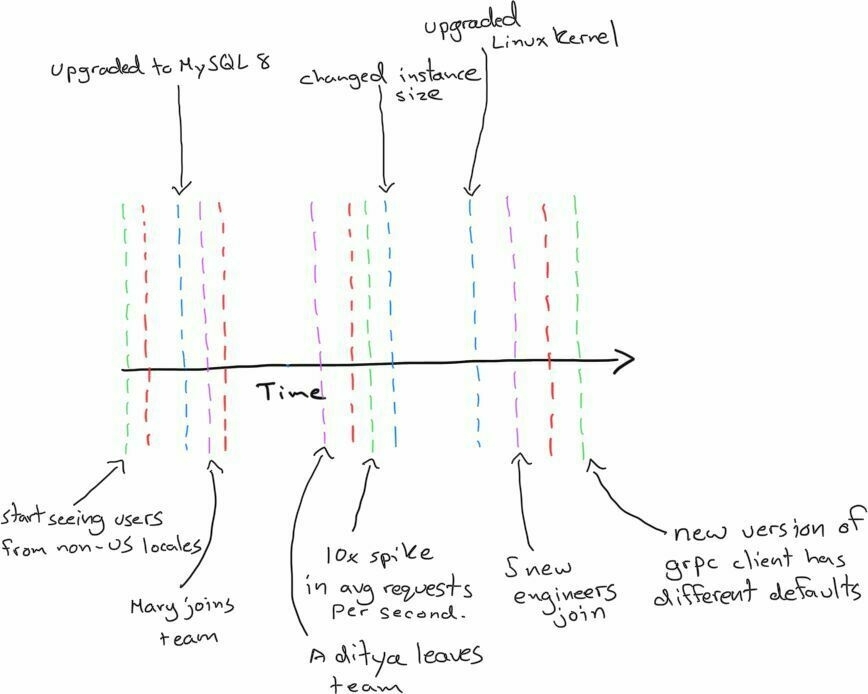 upgraded to MySQL 8
changed instance
size
upgraded
Linux Kernel
Time
start seeing users
from non-US locales
Mary joins
team
Aditya leaves
team
10x spike
in avg requests
Per second.
5 new
engineers
join
new version of
grpc client has
different defaults